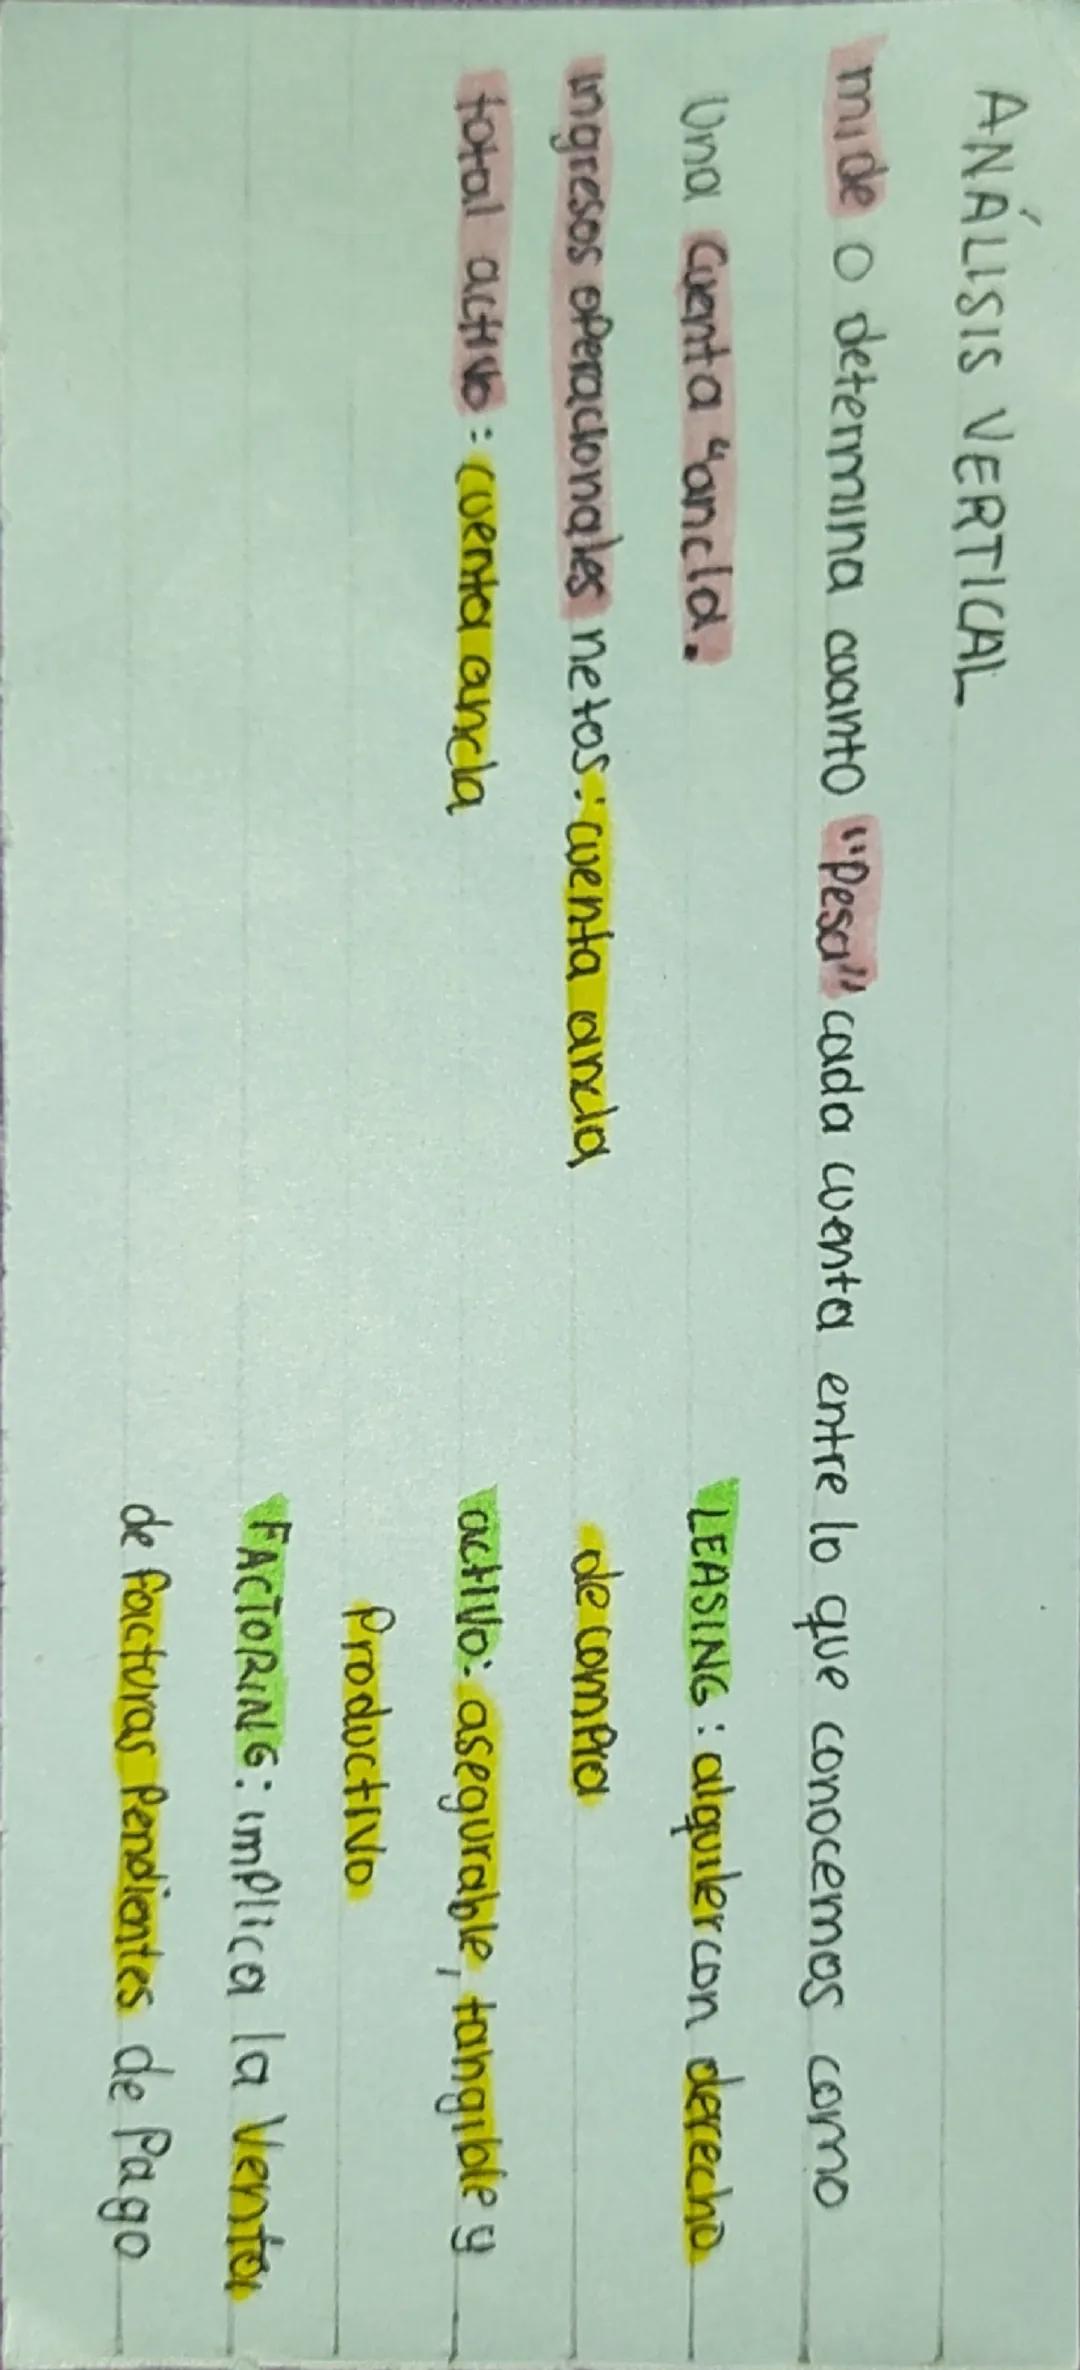 ANÁLISIS VERTICAL
mide o determina cuanto "Pesa" cada cuenta entre lo que conocemos como
Una cuenta "ancla.
ingresos operacionales netos: cuenta ancla
total activo: cuenta ancla
LEASING: alquiler con derecho
de compra
activo: asegurable, tangible y
Productivo
FACTORING: implica la Venta
de facturas Pendientes de Pago